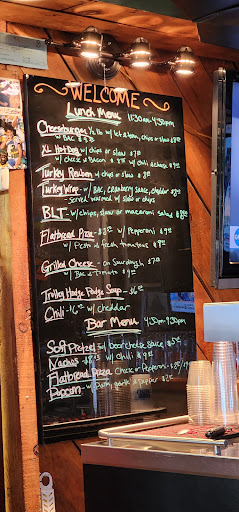 WELCOME
Lunch Menu 11:30am-4:30pm
Cheeseburger 1/2 lb w/ let & tom, chips or slaw
w/ Bac
XL Hot Dog w/ chips or slaw $
w/ cheese & Bacon w/ chili & cheese $
Turkey Reuben w/ chips or slaw $
Turkey Wrap - w/ Bac, cranberry sauce, cheddar
Served warmed w/ slaw or chips
BLT - w/ chips, slaw or macaroni salad $8
Flatbread Pizza - w/ Pepperoni $
w/ Pesto & fresh tomatoes $
Grilled Cheese - on Sourdough $7
w/ Bac & Tomato $9
Trolley Hodge Podge Soup - $6
Chili - $6 w/ cheddar
Bar Menu 4:30pm-9:30pm
Soft Pretzel w/ beer cheese sauce $5
Nachos w/ chili $9
Flatbread Pizza Cheese or Pepperoni
Popcorn - w/ garlic & pepper $